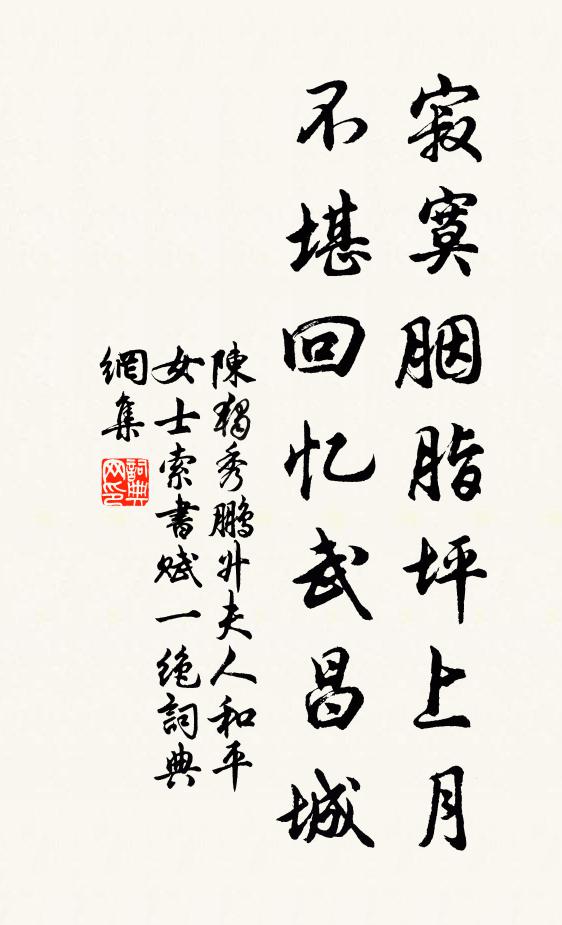 寂寞胭脂坪上月
不堪回忆武昌城
陳獨秀鵬升夫人和平
女士索書賦一绝詞典
網集
詞典網印